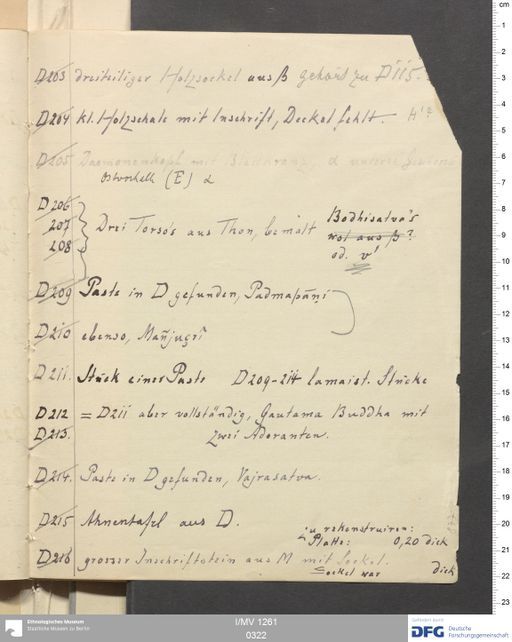 D203 dreiteiliger Holzsockel aus ß gehört zu D'115.
D204 kl. Holzschale mit Inschrift, Deckel fehlt. H'?
D205 Daemonenkopf mit
Osterhelle (E) α
D206
207
208
Drei Torso's aus Thon, bemalt
Bodhisatva's
wol aus ß?
od. v'
D209 Paste in D gefunden, Padmapāṇi
D210 ebenso, Mañjuçrî
D211. Stück einer Paste D209-214 lamaist. Stücke
D212 = D211 aber vollständig, Gautama Buddha mit
D213. zwei Adoranten.
D214. Paste in D gefunden, Vajrasatva.
D215 Ahnentafel aus D.
zu rekonstruiren:
Platte: 0,20 dick
D216 grosser Inschriftstein aus M mit Sockel.
Sockel war dick
cm
1
2
3
4
5
6
7
8
9
10
11
12
13
14
15
16
17
18
19
20
21
22
23
Ethnologisches Museum
Staatliche Museen zu Berlin
I/MV 1261
0322
Gefördert durch
DFG Deutsche
Forschungsgemeinschaft